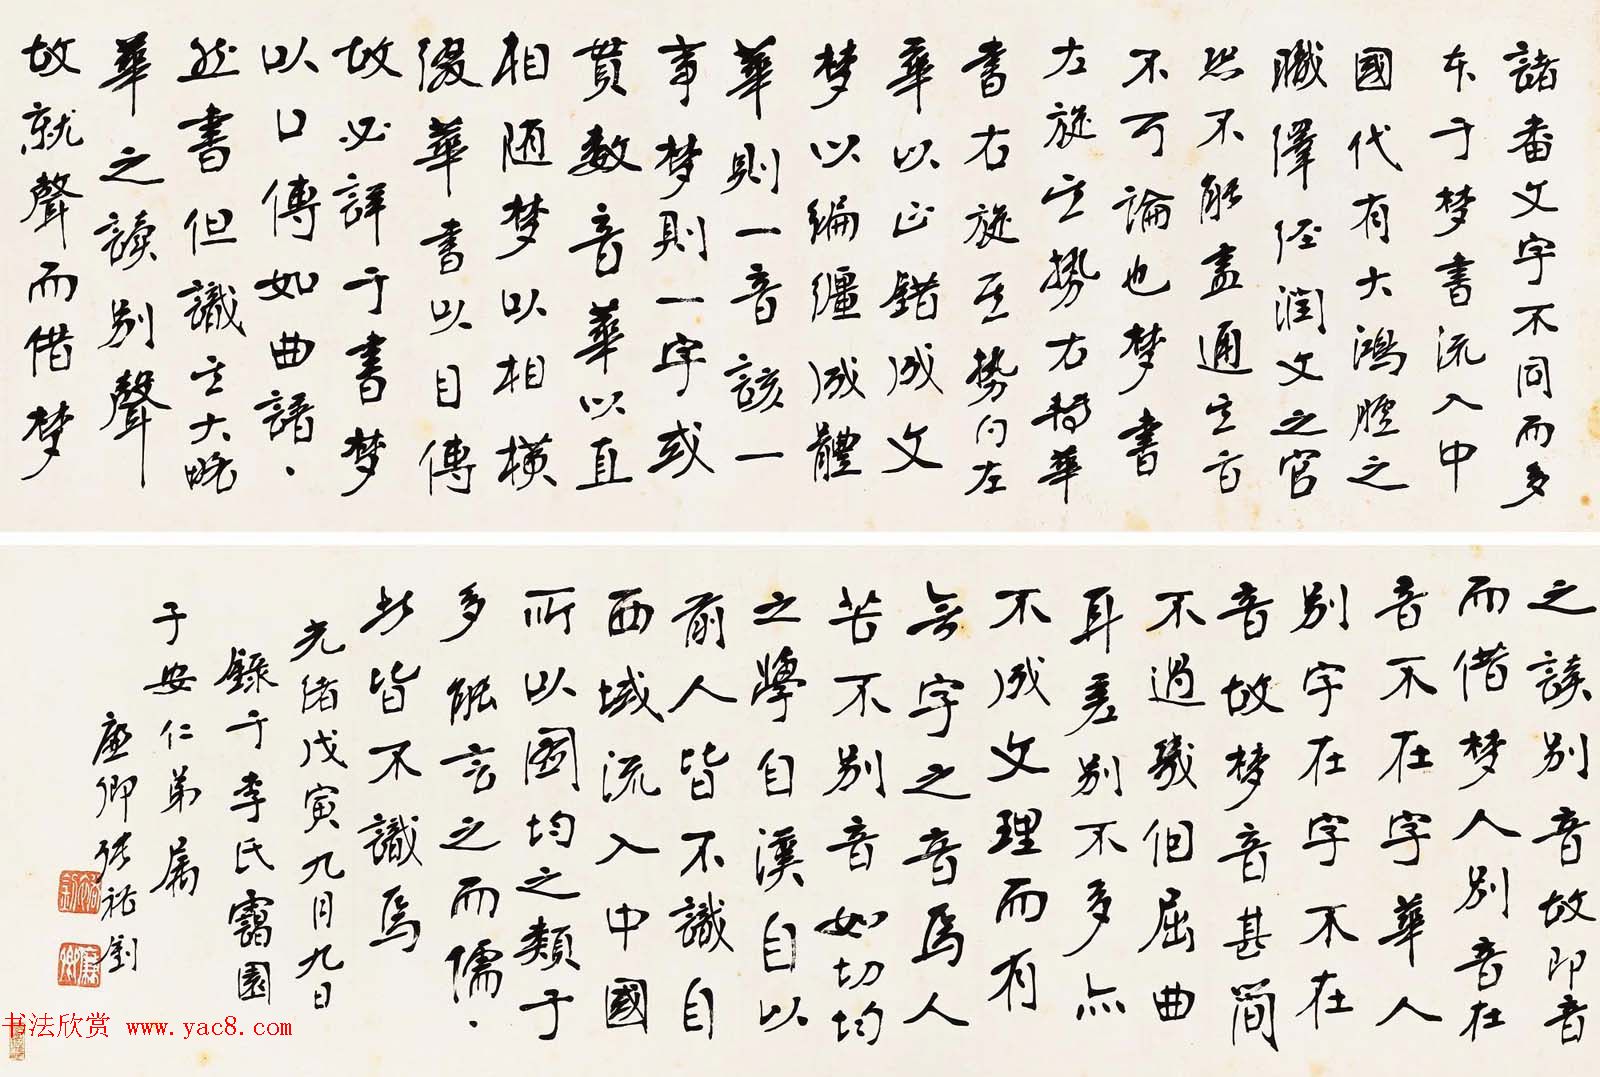 諸番文字不同而多
本于梵書流入中
國代有大鴻臚之
職譯經潤文之官
然不能盡通其旨
不可論也梵書
左旋其勢右轉華
書右旋其勢向左
華以正錯成文
梵以編纏成體
華則一音該一
事梵則一字或
貫數音華以直
相隨梵以相橫
綴華書以目傳
故必詳于書梵
以口傳如曲譜、
然書但識其大略
華之讀別聲
故就聲而借梵
之讀別音故即音
而借梵人別音在
音不在字華人
別字在字不在
音故梵音甚簡
不過幾個屈曲
耳差別不多亦
不成文理而有
無字之音焉人
苦不別音如切均
之學自漢自以
前人皆不識自
西域流入中國
所以圖均之類于
多能言之而儒、
此皆不識焉
光緒戊寅九月九日
錄于李氏靄園
子安仁弟屬
廉卿張裕釗
书法欣赏 www.yac8.com